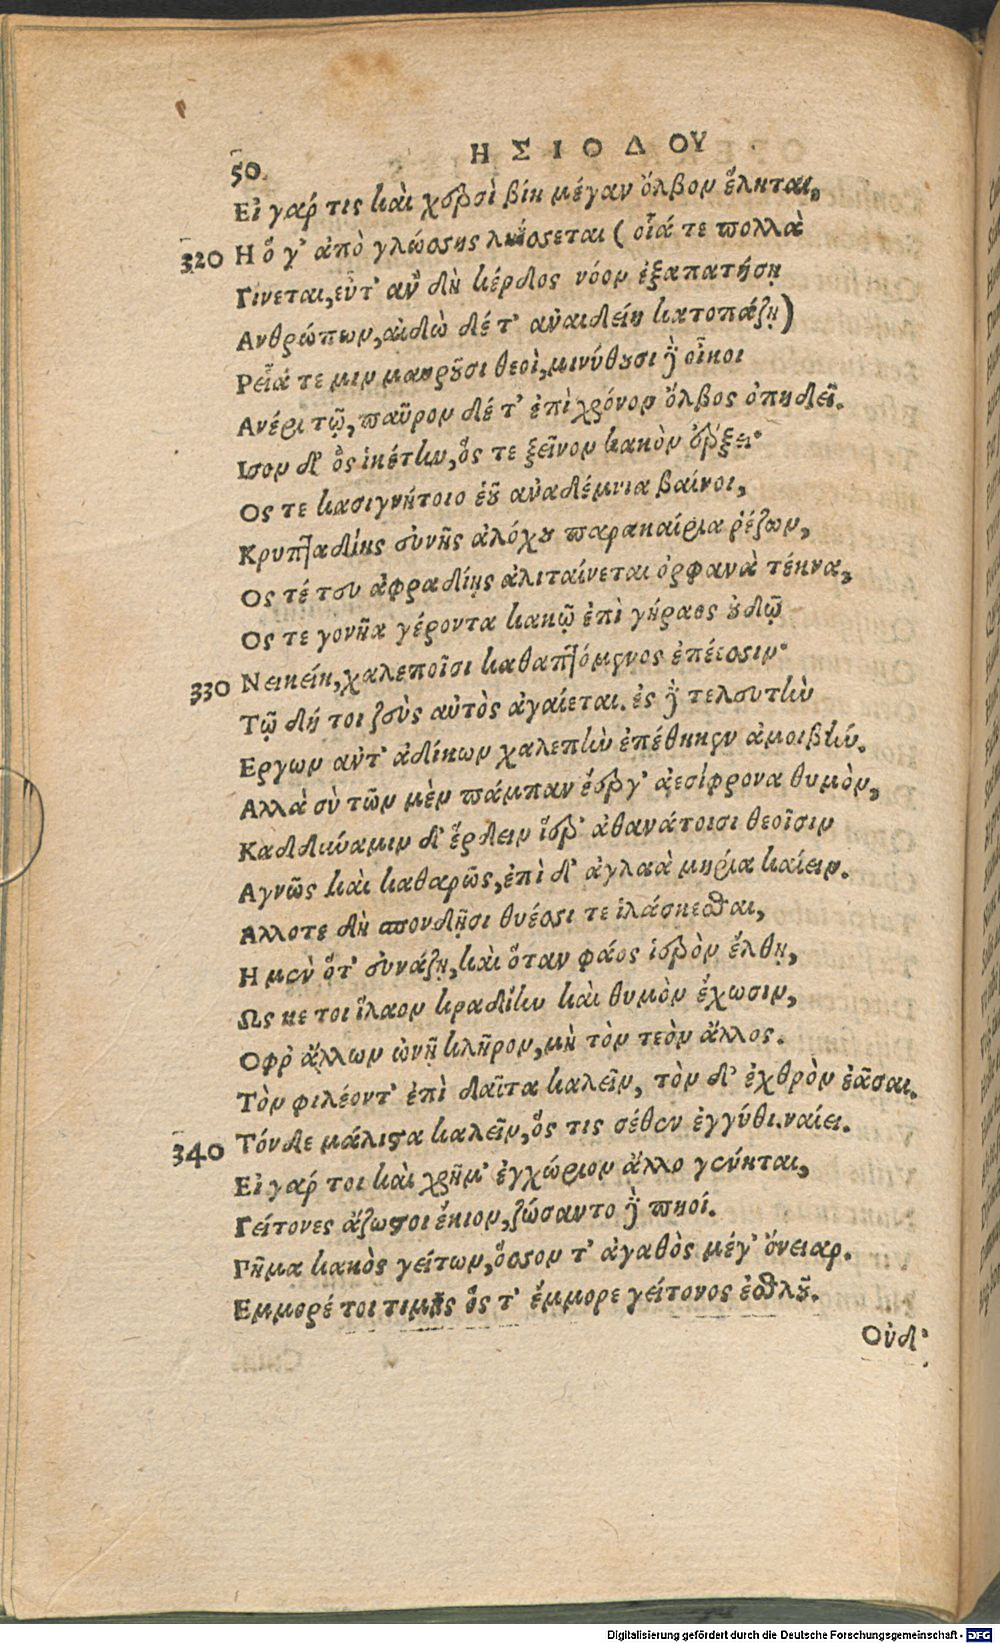 50
ΗΣΙΟΔΟΥ
Εἰ γάρ τις καὶ χερσὶ βίη μέγαν ὄλβον ἕληται,
320 Η ὅ γ' ἀπὸ γλώσσης ληΐσσεται (οἷά τε πολλὰ
Γίνεται, εὖτ' ἂν δὴ κέρδος νόον ἐξαπατήσῃ
Ανθρώπων, αἰδὼ δέ τ' ἀναιδείη κατοπάζῃ)
Ρεῖά τέ μιν μαυροῦσι θεοὶ, μινύθουσι δὲ οἶκοι
Ανέρι τῷ, παῦρον δέ τ' ἐπὶ χρόνον ὄλβος ὀπηδεῖ.
Ισον δ' ὃς ἱκέτην, ὅς τε ξεῖνον κακὸν ἔρξει·
Ος τε κασιγνήτοιο ἑοῦ ἀνὰ δέμνια βαίνοι,
Κρυπταδίης εὐνῆς ἀλόχου παρακαίρια ῥέζων,
Ος τέ τευ ἀφραδίῃς ἀλιταίνεται ὀρφανὰ τέκνα,
Ος τε γονῆα γέροντα κακῷ ἐπὶ γήραος οὐδῷ
330 Νεικείη, χαλεποῖσι καθαπτόμενος ἐπέεσσιν·
Τῷ δή τοι ζεὺς αὐτὸς ἀγαίεται. ἐς δὲ τελευτὴν
Εργων ἀντ' ἀδίκων χαλεπὴν ἐπέθηκεν ἀμοιβήν.
Αλλὰ σὺ τῶν μὲν πάμπαν ἔεργ' ἀεσίφρονα θυμὸν,
Καδδύναμιν δ' ἔρδειν ἱέρ' ἀθανάτοισι θεοῖσιν
Αγνῶς καὶ καθαρῶς, ἐπὶ δ' ἀγλαὰ μηρία καίειν.
Αλλοτε δὴ σπονδῇσι θυέσσι τε ἱλάσκεσθαι,
Η μὲν ὅτ' εὐνάζῃ, καὶ ὅταν φάος ἱερὸν ἔλθῃ,
Ως κε τοι ἵλαον κραδίην καὶ θυμὸν ἔχωσιν,
Οφρ' ἄλλων ὠνῇ κλῆρον, μὴ τὸν τεὸν ἄλλος.
Τὸν φιλέοντ' ἐπὶ δαῖτα καλεῖν, τὸν δ' ἐχθρὸν ἐᾶσαι.
340 Τόνδε μάλιστα καλεῖν, ὅς τις σέθεν ἐγγύθι ναίει.
Εἰ γάρ τοι καὶ χρῆμ' ἐγχώριον ἄλλο γένηται,
Γείτονες ἄζωστοι ἔκιον, ζώσαντο δὲ πηοί.
Πῆμα κακὸς γείτων, ὅσσον τ' ἀγαθὸς μέγ' ὄνειαρ.
Εμμορέ τοι τιμῆς ὅς τ' ἔμμορε γείτονος ἐσθλοῦ.
Οὐδ'
Digitalisierung gefördert durch die Deutsche Forschungsgemeinschaft - DFG